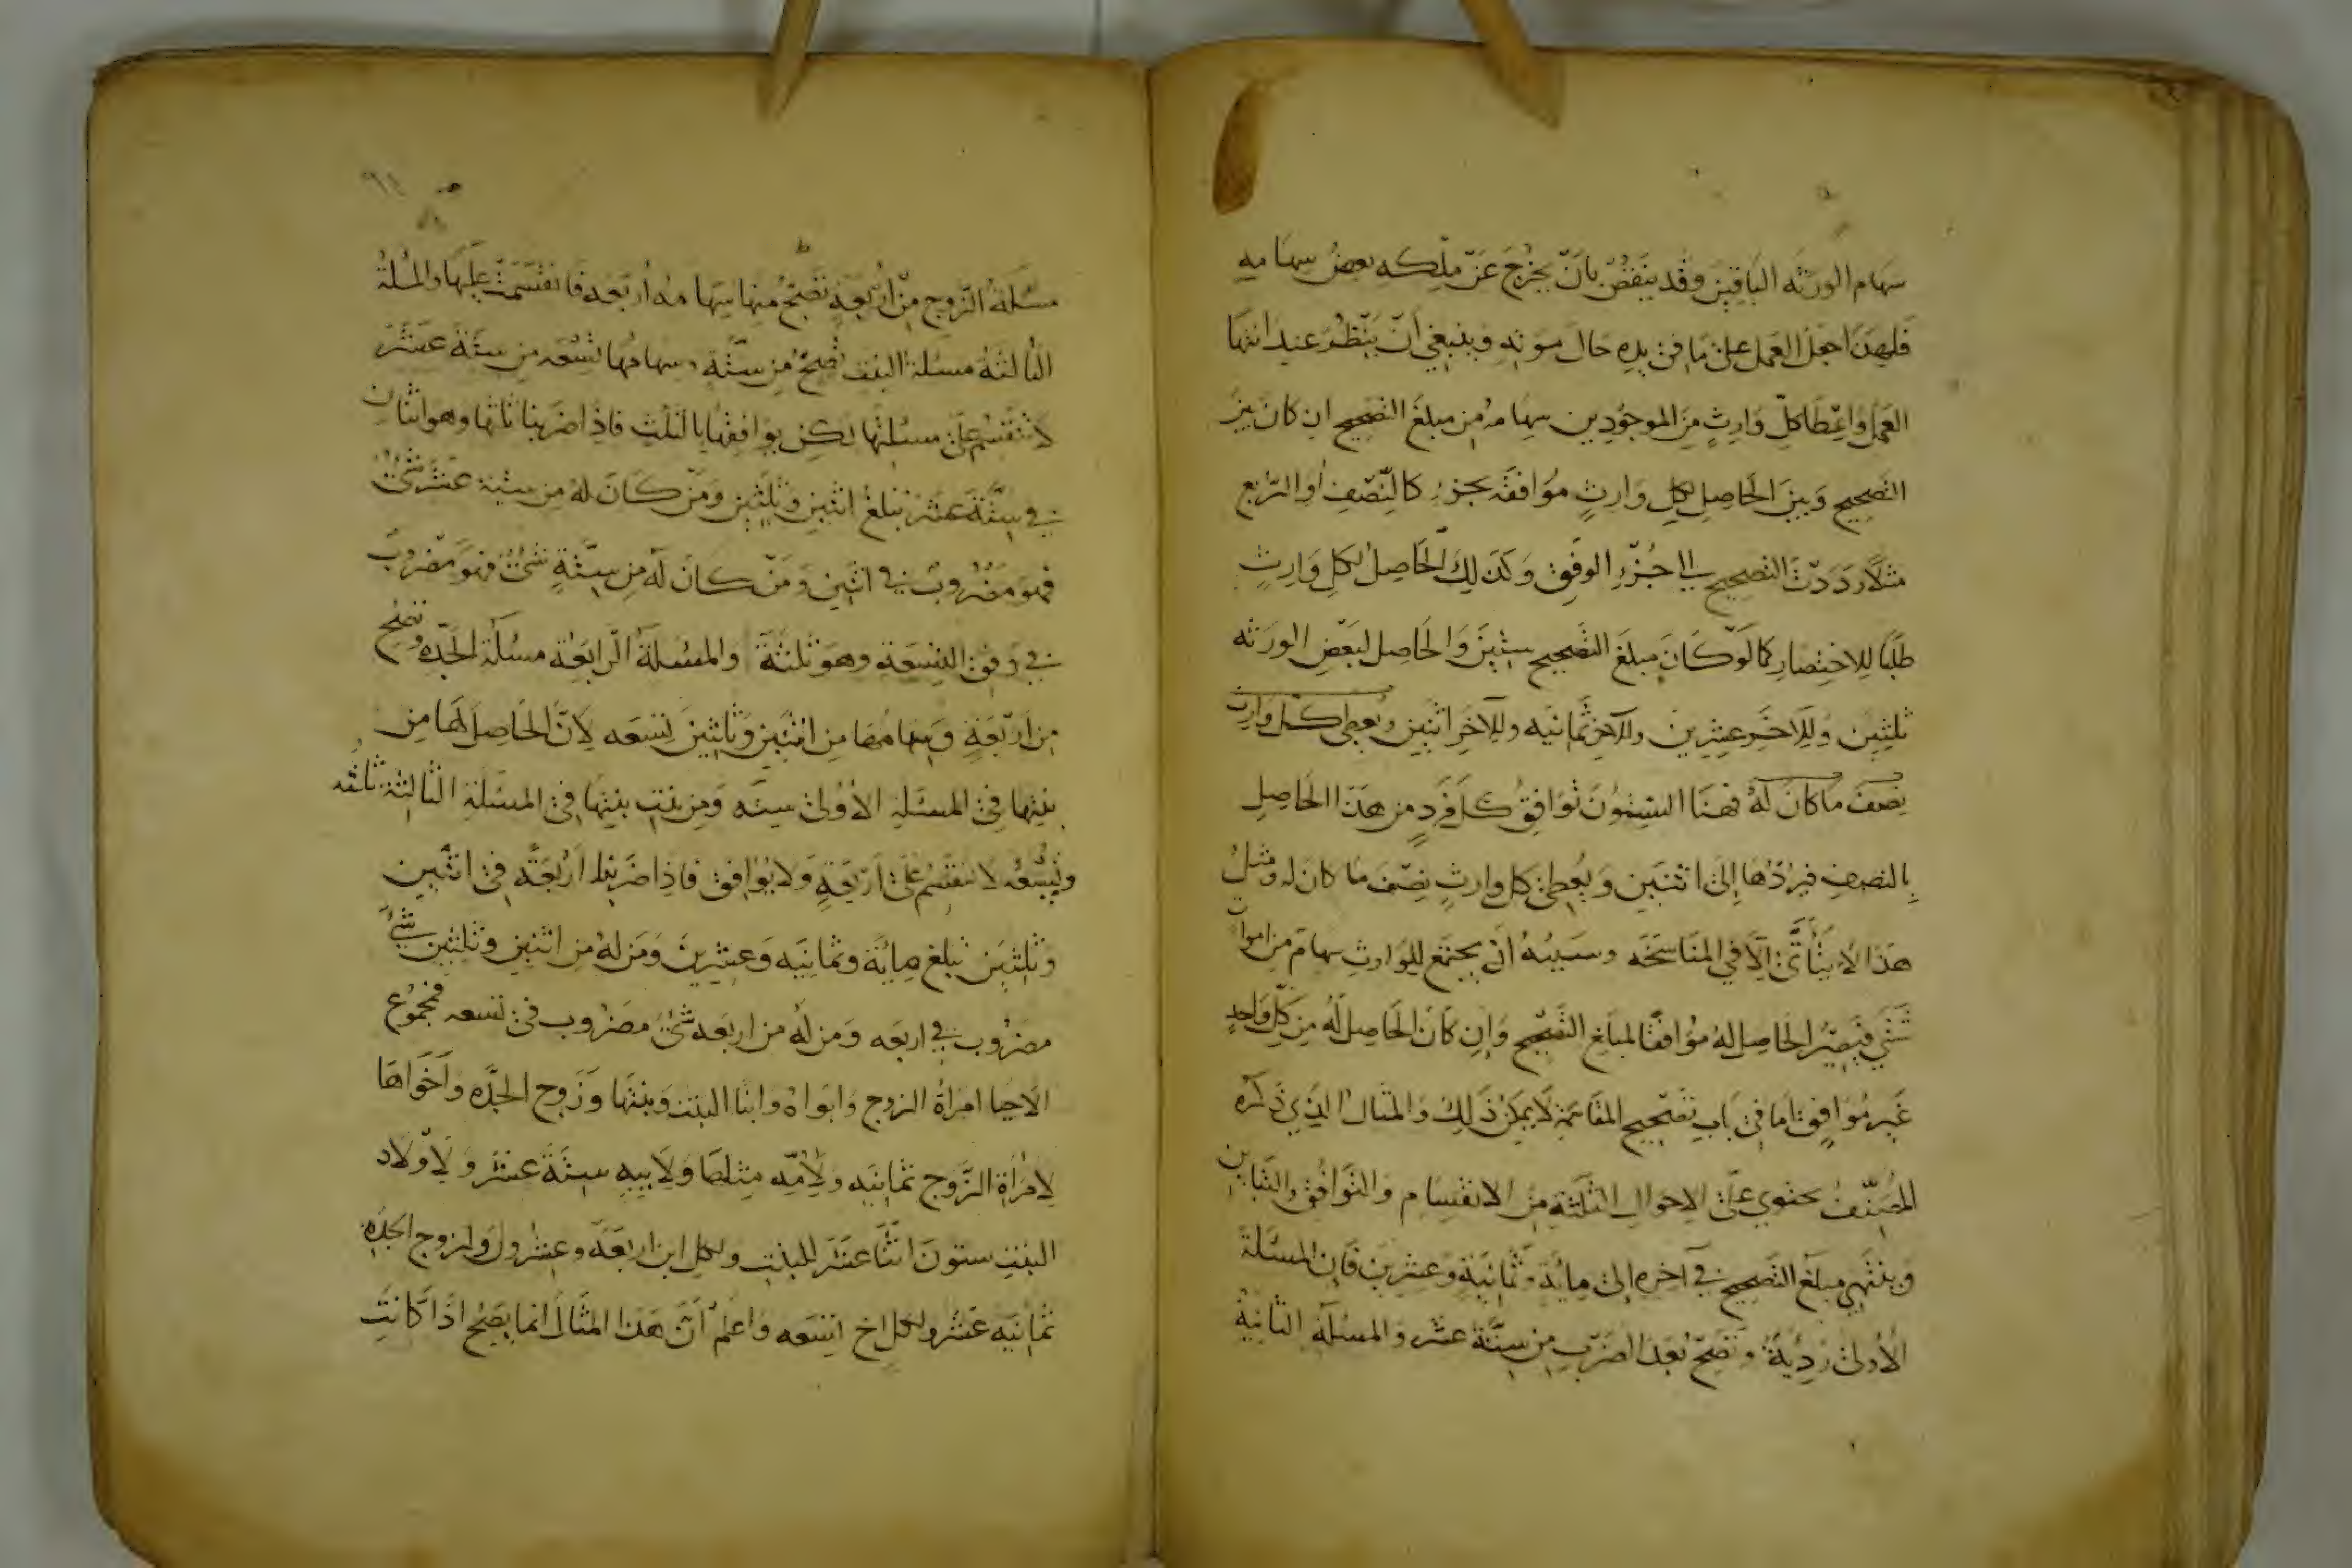 سهام الورثه الباقين وقد ينقض بان يخرج عن ملكه بعض سهامه
فلهذا جعل العمل على ما في يده حال موته وينبغي ان ينظر عند انتها
العمل واعطا كل وارث من الموجودين سهامه من مبلغ التصحيح ان كان بين
التصحيح وبين الحاصل لكل وارث موافقه بجزء كالنصف او الربع
مثلا رددت التصحيح الى جزء الوفق وكذلك الحاصل لكل وارث
طلبا للاختصار كما لو كان مبلغ التصحيح ستين والحاصل لبعض الورثه
ثلثين وللاخر عشرين وللاخر ثمانيه وللاخر اثنين ويعطى كل وارث
نصف ما كان له فهنا الستون توافق كل فرد من هذا الحاصل
بالنصف فيردها الى اثنين ويعطى كل وارث نصف ما كان له ومثل
هذا لا يتأتى الا في المناسخه وسببه ان يجتمع للوارث سهام من اموات
شتى فيصير الحاصل له موافقا لمبلغ التصحيح وان كان الحاصل له من كل واحد
غير موافق اما في باب تصحيح المقاسمة لا يمكن ذلك والمثال الذي ذكره
المصنف يحتوي على الاحوال الثلثة من الانقسام والتوافق والتباين
وينتهي مبلغ التصحيح في آخره الى مائة وثمانية وعشرين فان المسئلة
الاولى ردية وتصح بعد الضرب من ستة عشر والمسئلة الثانية
مسئلة الزوج من اربعة تصح منها سهامه اربعه فانقسمت عليها والمسئلة
الثالثة مسئلة البنت تصح من ستة وسهامها تسعه من ستة عشر
لا تنقسم على مسئلتها لكن يوافقها بالثلث فاذا ضربنا ثلثها وهو اثنان
في ستة عشر تبلغ اثنين وثلثين ومن كان له من ستة عشر شئ
فهو مضروب في اثنين ومن كان له من ستة شئ فهو مضروب
في وفق التسعة وهو ثلثة والمسئلة الرابعة مسئلة الجده وتصح
من اربعة وسهامها من اثنين وثلثين تسعه لان الحاصل لها من
بنتها في المسئلة الاولى ستة ومن بنت بنتها في المسئلة الثالثة ثلثه
وتسعه لا تنقسم على اربعة ولا يوافق فاذا ضربنا اربعة في اثنين
وثلثين تبلغ مائة وثمانيه وعشرين ومن له من اثنين وثلثين شئ
مضروب في اربعه ومن له من اربعه شئ مضروب في تسعه فمجموع
الاحيا امراة الزوج وابواه وابنا البنت وبنتها وزوج الجده واخواها
لامراة الزوج ثمانيه ولامه مثلها ولابيه ستة عشر ولاولاد
البنت ستون اثنا عشر للبنت ولكل ابن اربعة وعشرون ولزوج الجده
ثمانيه عشر ولكل اخ تسعه واعلم ان هذا المثال انما يصح اذا كانت